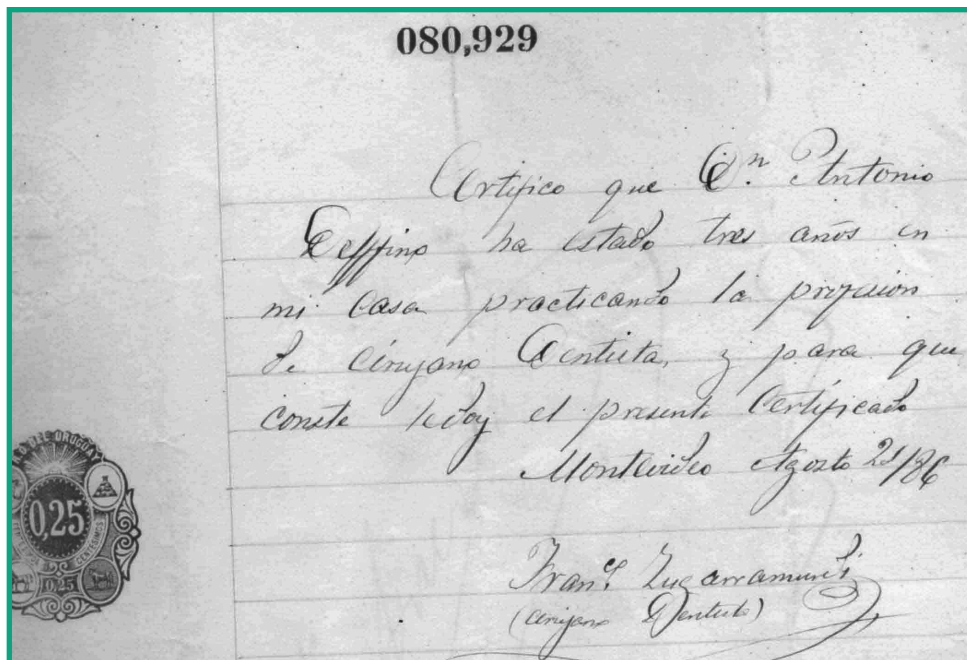 080,929
Certifico que Dn. Antonio
Delffino ha estado tres años en
mi Casa practicando la profecion
de Cirujano Dentista, y para que
conste le doy el presente Certificado
Montevideo Agosto 21/86
Franco. Zugarramurdi
(Cirujano Dentista)
DEL URUGUAY
0,25
CENTESIMOS
0,25